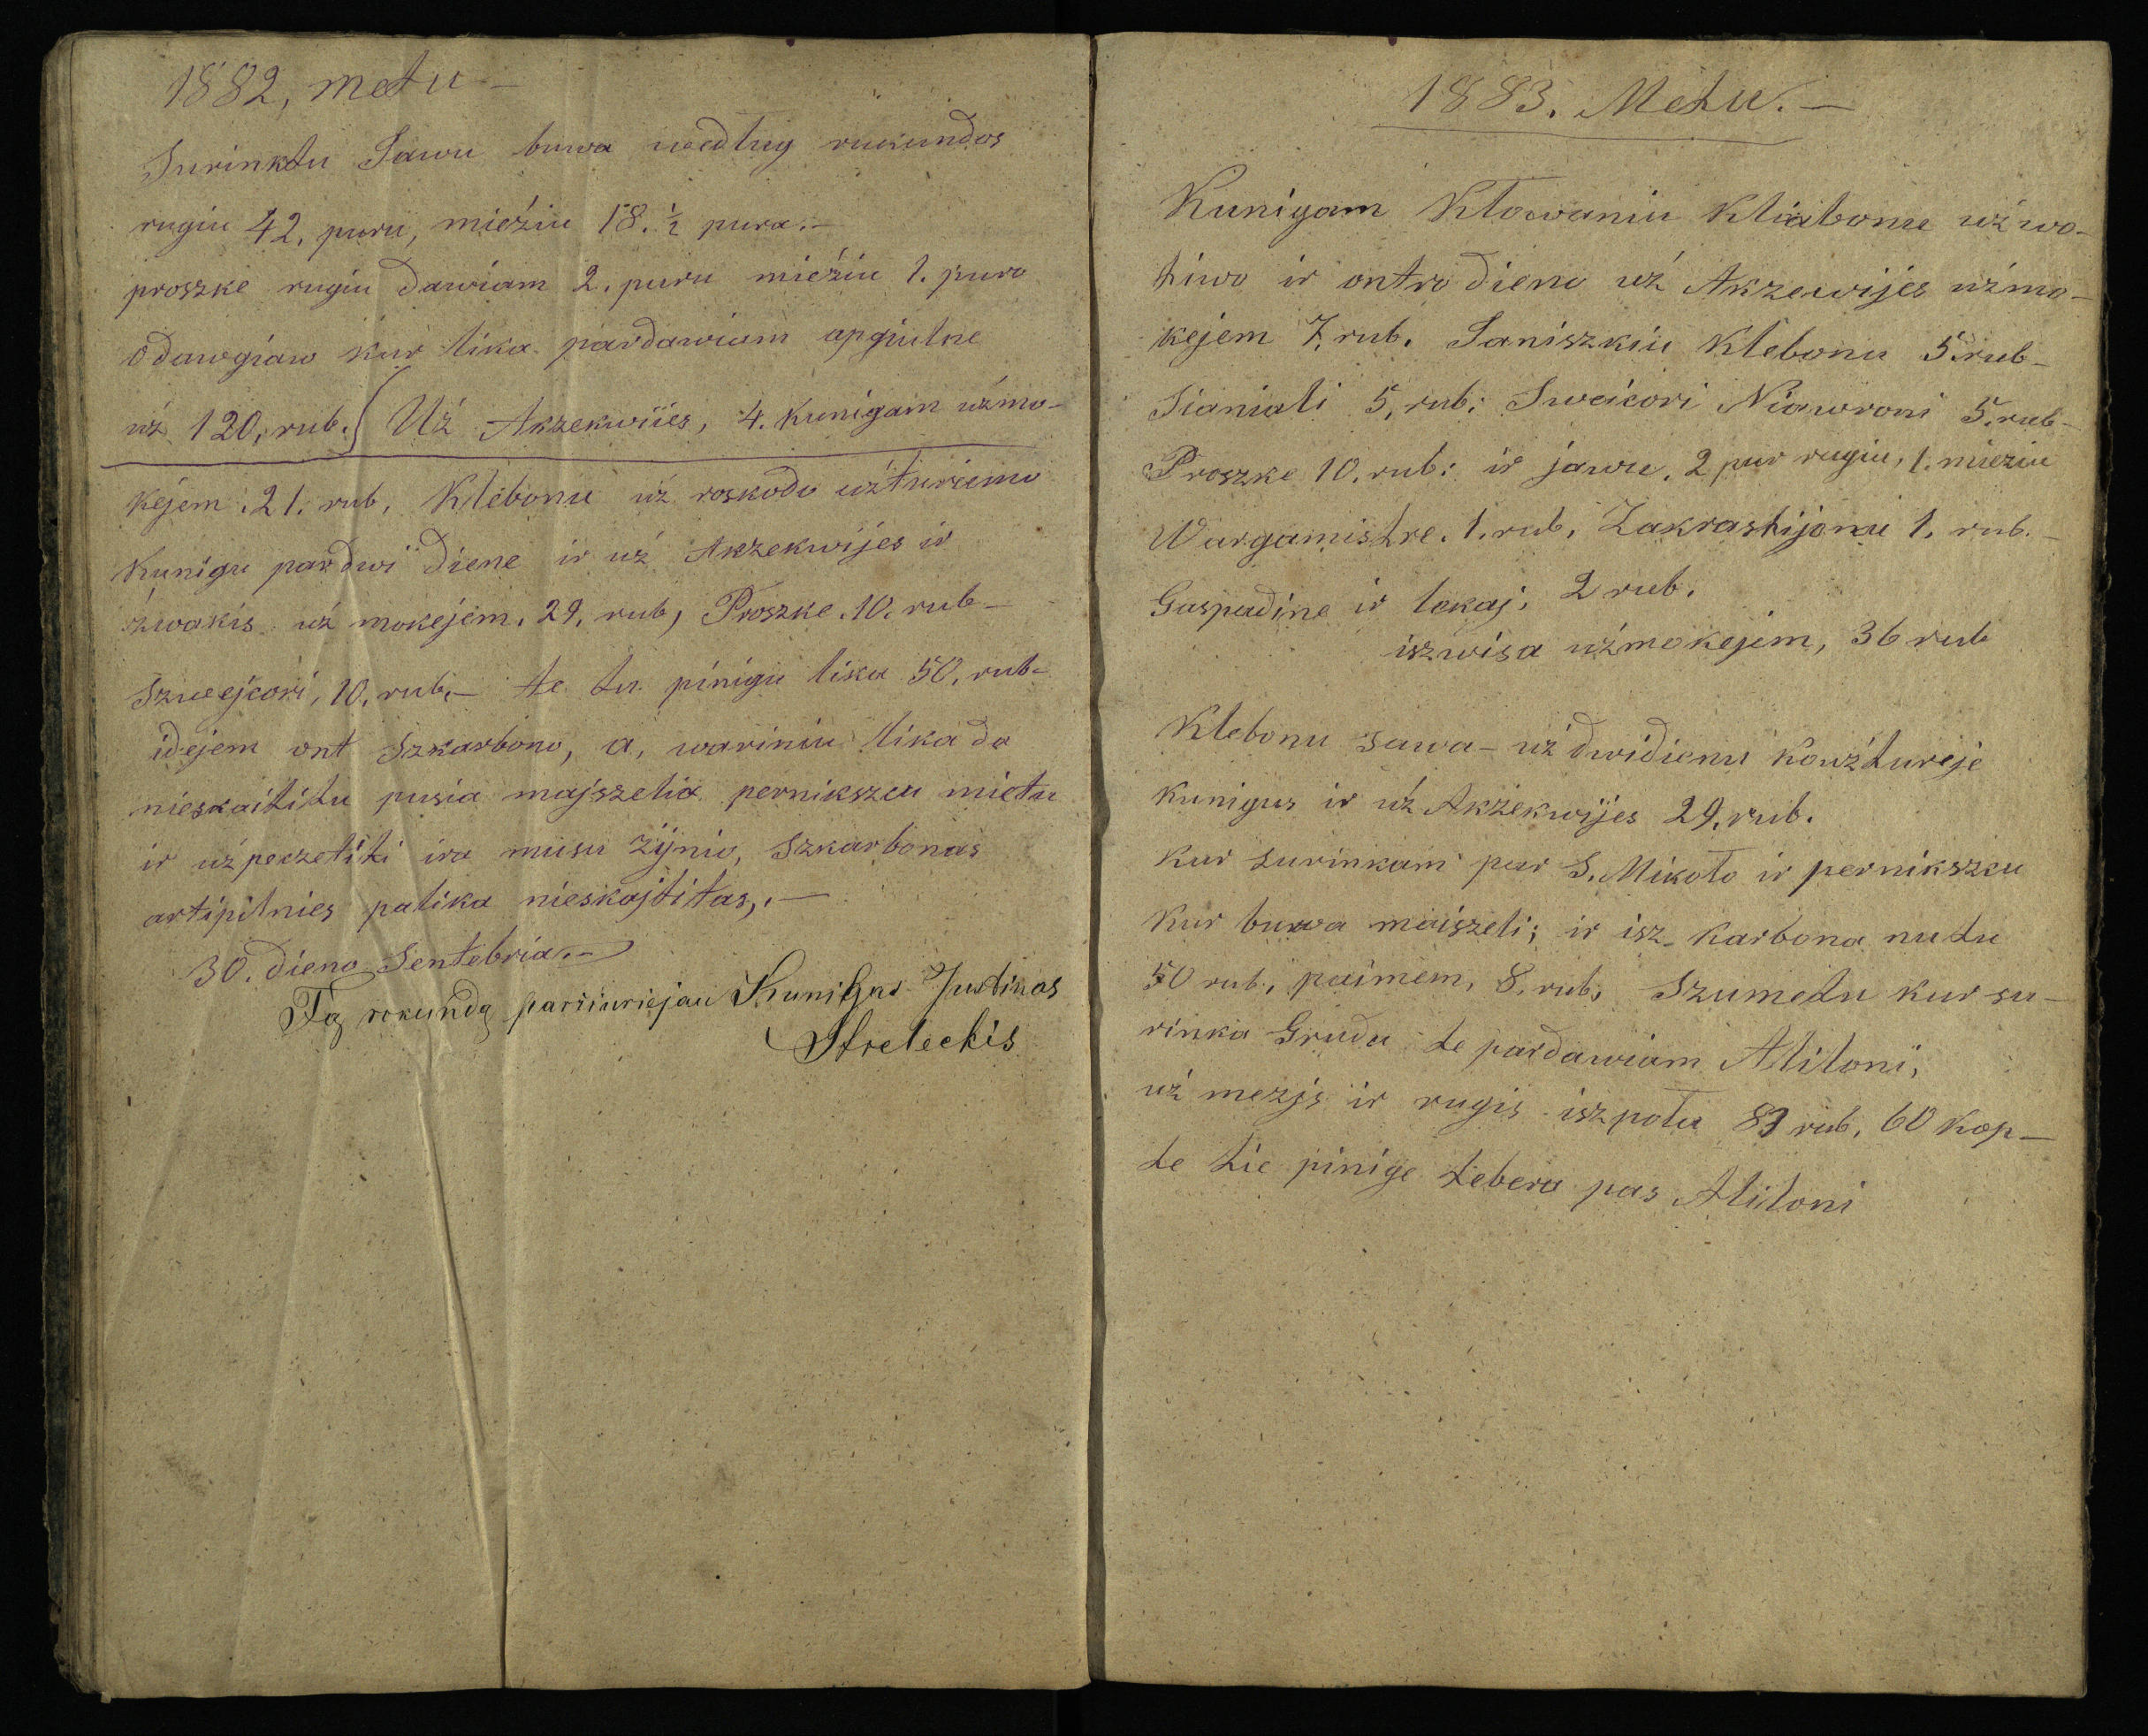 1882, metu —
Surinktu Jawu buwa wedlug rukundos
rugiu 42, puru, mieźiu 18. ½ pura. —
proszke rugiu dawiam 2. puru mieźiu 1. puro
o daugiaw kur lika pardawiam apgiulne
uź 120, rub. Uź Akzekwiies, 4. Kunigam uźmo-
kejem. 21. rub, Klebonu uź roskodo uźturiimo
Kunigu par dwi diene ir uź Akzekwijes ir
źwakis uź mokejem. 29, rub, Proszke. 10. rub —
Szwejcori, 10, rub. — te tu pinigu liku 50, rub —
idejem ont Szkarbono, a, wariniu lika da
nieskaititu pusia majszelia pernikszcu mietu
ir uźpeczetiti ira musu Zijnio, Szkarbonas
artipilnies palika nieskajtitas,. —
30. dieno Sentebria. —
Tą rokundą pariiuriejau Kunigas Justinas
Streleckis
1883. Metu. —
Kunigam Klowaniu Kliabonu uź wo-
tiwo ir ontro dieno uź Akzewijes uźmo-
kejem 7, rub. Saniszkiu Klebonu 5. rub —
Sianiali 5, rub: Sweicori Niawroni 5. rub —
Proszke 10. rub: ir jawu, 2 pur rugiu, 1. mieziu
Wargamistre. 1. rub, Zakrastijonu 1. rub. —
Gaspadine ir lokaj. 2 rub.
iszwisa uźmokejem, 36 rub
Klebonu sawa — uź dwidienu Kouźtureje
Kunigus ir uź Akzekwijes 29, rub.
Kur surinkam par S. Mikolo ir pernikszcu
Kur buwa maiszeli; ir isz — karbona nu tu
50 rub., paimem, 8, rub, Szumetu kur su-
rinka Grudu te pardawiam Alitoni,
uź mezjs ir rugis iszpolu 83 rub, 60 kop —
te tie pinige tebera pas Alitoni